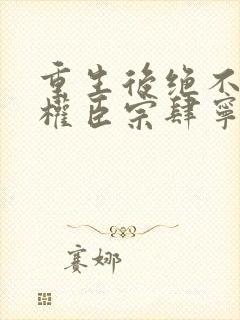 重生後绝不
權臣宗肆寧
赛娜